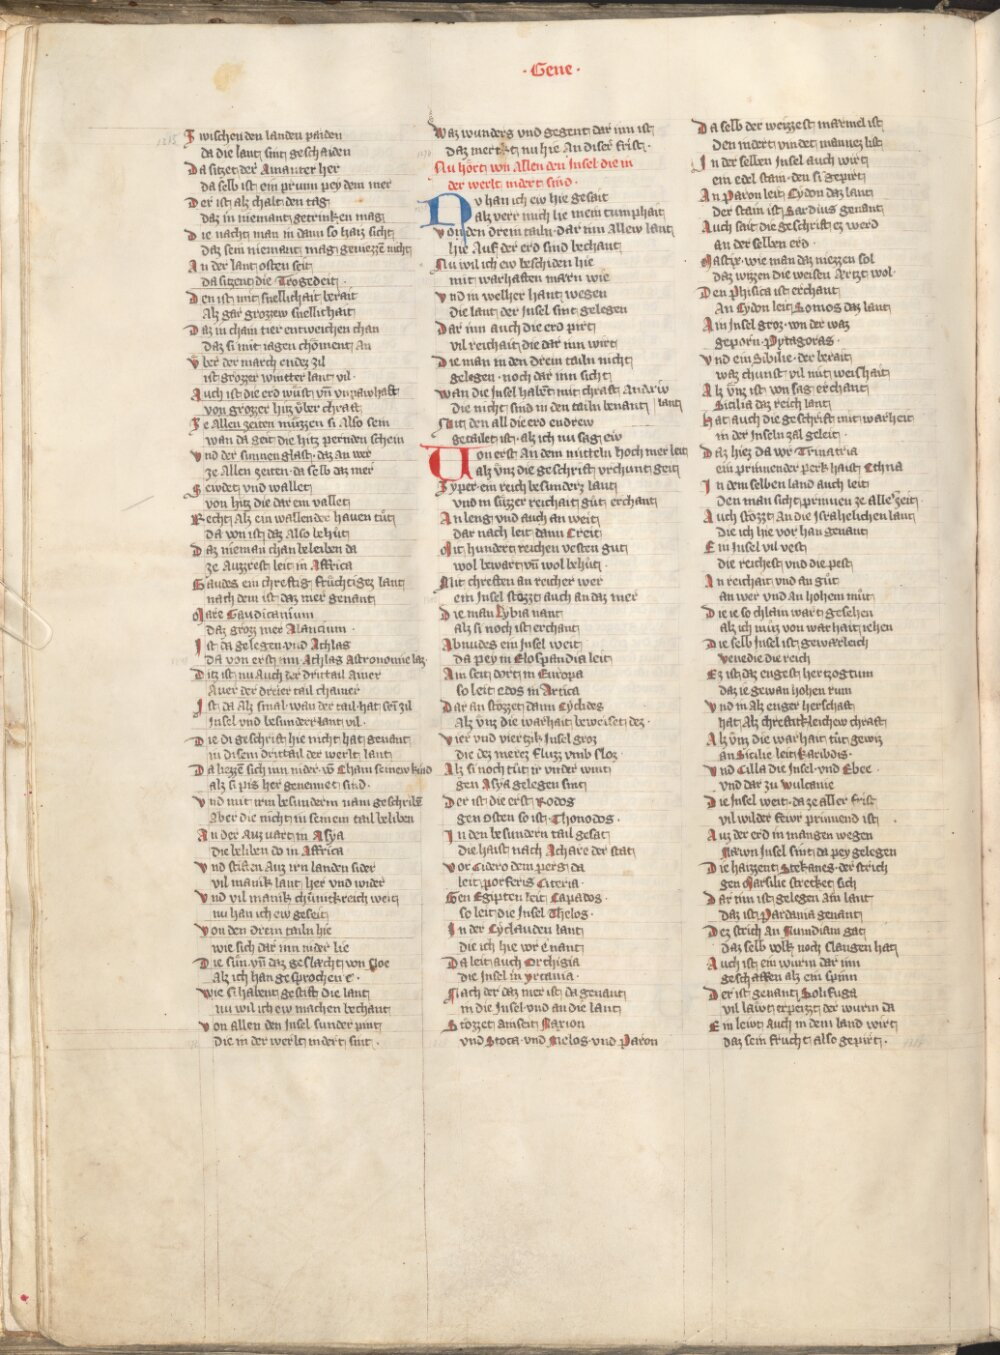 ·Gene·
Zwischen den landen paiden
da die lant sint geschaiden
Da sitzet der Amanter her
da selb ist ein prunn pey dem mer
Der ist als chalt den tag
daz in niemant getrinken mag
Die nacht man in dann so haiz sicht
daz sein niemant mag geniezzē nicht
An der lant osten seit
da sitzent die Trogedeit
Den ist mit snellichait berait
Alz gar grozzew snellichait
Daz in chain tier entweichen chan
daz si mit iagen chöment an
Vber der march endez zil
ist grozzer wintter lant vil·
Auch ist die erd wüst vn̄ vnpawhaft
von grozzer hitz vber chraft
Ze Allen zeiten müzzen si Also sein
wan da geit die hitz pernden schein
Vnd der sunnen glast· daz An wer
ze Allen zeiten· da selb daz mer
Sewdet vnd wallet
von hitz die dar ein vallet
Recht Alz ein wallender haven tůt
da von ist daz Also behůt
Daz nieman chan beleiben da
ze Auzzrest leit in Affrica
Gaudes ein chreftig früchtigez lant
nach dem ist daz mer genant
Mare Gaudicanium
daz groz mer Alancium·
Ist da gelegen vnd Athlas
da von erst inn Athlas Astronomie laz
Ditz ist nu Auch der drittail Aver
Aver der dreier tail chainer
Ist da Alz smal· wan der tail· hat seī zil
Insel vnd besunder lant vil·
Die di geschrift hie nicht hat genant
in disem drittail der werlt lant
Da liezzē sich inn nider· vō Cham seinew kind
alz si pis her genennet sind·
Vnd mit irm besundern nam geschribē
Aber die nicht in seinem tail beliben
An der Auz vart in Asya
die beliben do in Affrica
Vnd stiften Auz irn landen sider
vil manik lant her vnd wider
Vnd vil manik chünickreich weit
nu han ich ew geseit
Von den drein tailn hie
wie sich dar inn nider lie
Die sün vn̄ daz geslæcht von Noe
Alz ich han gesprochen e·
Wie si habent gestift die lant
nu wil ich ew machen bechant
Von allen den Insel sunder pint
die in der werlt indert sint·
Waz wunders vnd gegent dar inn ist
daz merkt nu hie An diser frist·
Nu hört von Allen den Insel die in
der werlt indert sind·
Nv han ich ew hie gesait
alz verr mich lie mein tumphait
Von den drein tailn· dar inn Allew lant
hie Auf der erd sind bechant
Nu wil ich ew bescheiden hie
mit warhaften mærn wie
Vnd in welher hant wegen
die lant der Insel sint gelegen
Dar inn auch die erd pirt
vil reichait die dar inn wirt
Die man in den drein tailn nicht
gelegen· noch dar inn sicht
Wan die Insel habēt mit chraft Andriv
lant
Die nicht sind in den tailn benant
Mit den all die erd endrew
getailet ist· alz ich nu sag ew
Von erst An dem mitteln hoch mer leit
alz vnz die geschrift vrchunt geit
Zyper· ein reich besunderz lant
vnd in süzzer reichait gůt erchant
An leng vnd auch an weit
dar nach leit dann Creit
Mit hundert reichen vesten gut
wol bewart vn̄ wol behůt·
Mit chreften an reicher wer
ein Insel stözzt auch an daz mer
Die man Lybia nant
alz si noch ist erchant
Abnudes ein Insel weit
da pey in Elospandia leit
Am seit dort in Europa
so leit edos in Artica
Dar an stözzet dann Cyclides
Alz vnz die warhait beweiset dez·
Vier vnd viertzik Insel groz
die dez merez fluzz vmb sloz·
Alz si noch tůt ir vnder wint
gen Asya gelegen sint
Der ist die erst Rodos
gen osten so ist· Thonodos·
In den besundern tail gesat
die haist nach Achare der stat
Vor Cidero dem perg da
leit porferis Citeria·
Gen Egipten leit Capados·
so leit die Insel Thelos·
In der Cyclauden lant
die ich hie vor e nant
Da leit auch Orchigia
die Insel in yrcania·
Nach der daz mer ist da genant
in die Insel vnd an die lant
Stözzet am seit Naxion
vnd Stoca· vnd Melos· vnd Paron
Da selb der weizzest marmel ist
den indert vindet mannez list
In der selben Insel auch wirt
ein edel stain· den si gepirt
An Paron leit Cydon daz lant
der stain ist Sardius genant
Auch sait die geschrift ez werd
an der selben erd·
Mastix· wie man daz niezzen sol
daz wizzen die weisen Artzt wol·
Den Phisica ist erchant
An Cydon leit Somos daz lant
Ain Insel groz· von der waz
geporn· Pytagoras·
Vnd ein Sibilie· der berait
waz chunst vil mit weishait
Alz vnz ist von sag erchant
Sicilia daz reich lant
Hat auch die geschrift mit warheit
in der Inseln zal geleit·
Daz hiez da vor Trinatria
ein prinnender perk haist Ethna
In dem selben land auch leit
Den man sicht prinnen ze aller zeit·
Auch stözzt An die Israhelichen lant
die ich hie vor han genant
Ein Insel vil vest
die reichest vnd die pest
An reichait vnd an gůt
an wer vnd An hohem můt
Die ie so chlain wart gesehen
alz ich můz von warhait iehen
Die selb Insel ist gewærleich
Venedie die reich
Ez ist daz engest hertzogtum
daz ie gewan hohen rum
Vnd in Alz enger herschaft
hat Alz chreftikleichew chraft
Alz vnz die warhait tůt gewiz
an Sicilie leit Karibdis·
Vnd Cilla die Insel· vnd Ebee·
vnd dar zu Wulcanie
Die Insel weit· da ze aller frist
vil wilder fewr prinnend ist
Auz der erd in mangen wegen
Næwn Insel sint da pey gelegen
Die haizzent Stekanes· der strich
gen Marsilie strecket sich
Dar inn ist gelegen ain lant
daz ist Pardania genant
Dez strich An Numidiam gat
daz selb volk noch slangen hat
Auch ist ein wurm dar inn
geschaffen alz ein spinn
Der ist genant Solifuga
vil lawt erpeizzt der wurm da
Ein lewt Auch in dem land wirt
daz sein frucht also gepirt·